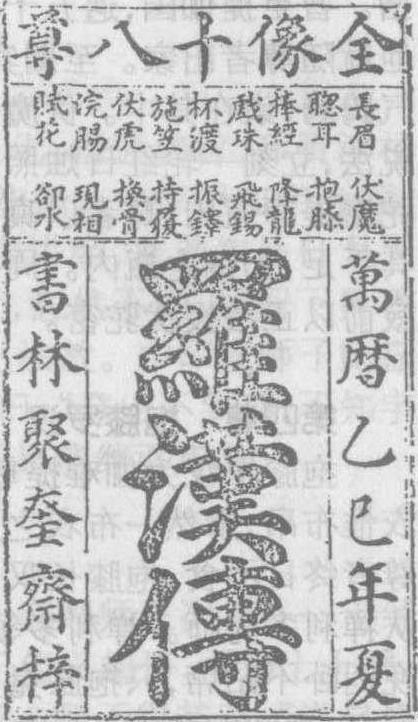 全像十八尊
長眉 伏魔
聰耳 抱膝
捧經 降龍
戲珠 飛錫
杯渡 振鐸
施笠 持履
伏虎 換骨
浣腸 現相
賦花 卻水
萬曆乙巳年夏
羅漢傳
書林聚奎齋梓